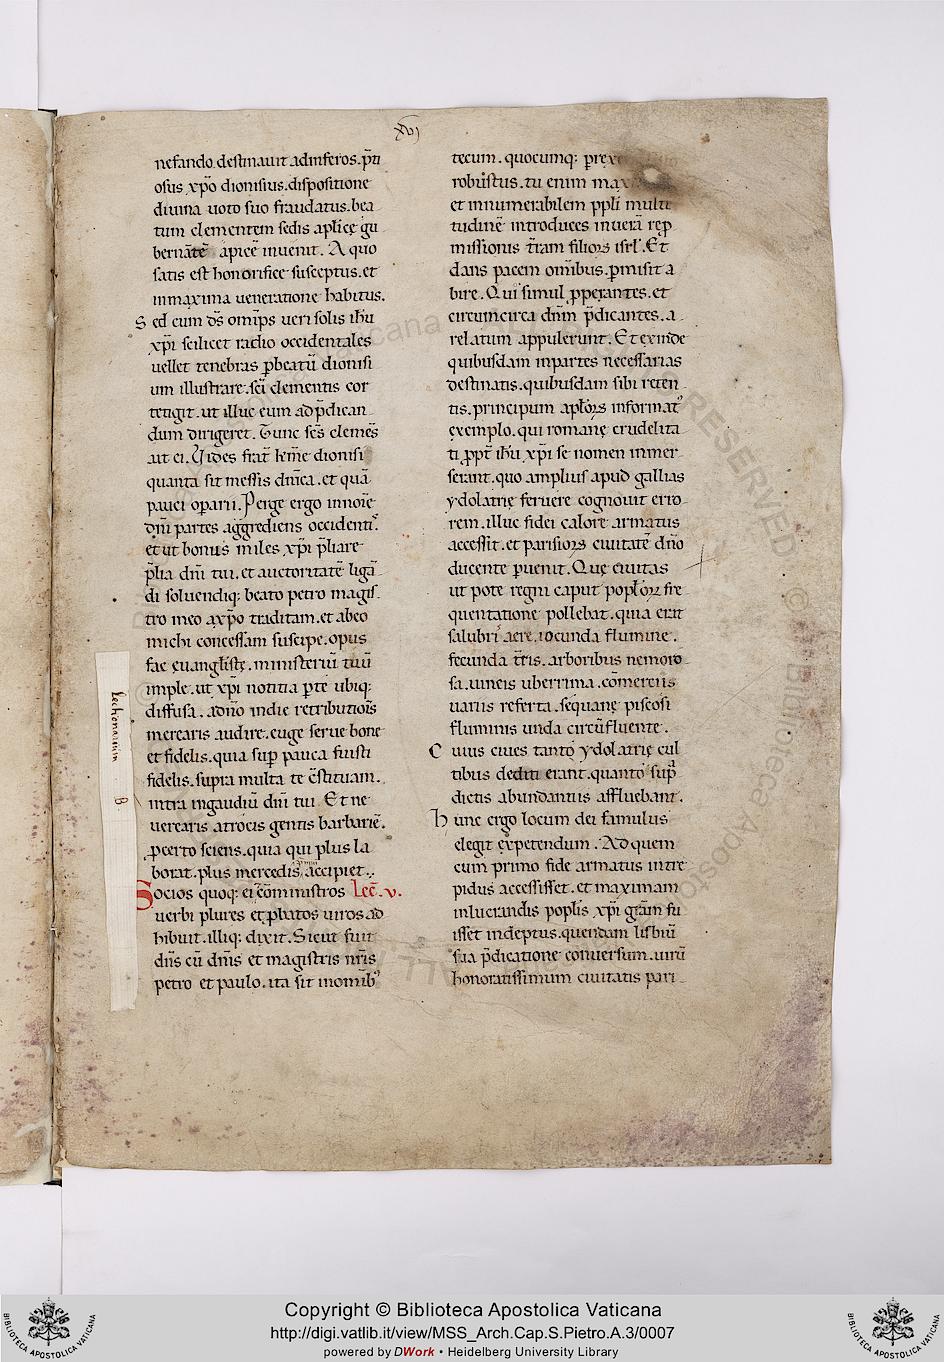 xvi
nefando destinavit ad inferos. p̄ti
osus xp̄o dionisius. dispositione
divina voto suo fraudatus. bea
tum clementem sedis aplicę gu
bernātē apicē invenit. A quo
satis est honorifice susceptus. et
in maxima veneratione habitus.
Sed cum d̄s om̄ps veri solis ih̄u
xp̄i scilicet radio occidentales
vellet tenebras p beatū dionisi
um illustrare. sc̄i clementis cor
tetigit. ut illuc eum ad p̄dican
dum dirigeret. Tunc sc̄s clemēs
ait ei. Vides frat̄ km̄e dionisi
quanta sit messis dn̄ica. et quā
pauci operarii. Perge ergo in noīe
dn̄i partes aggrediens occidentis.
et ut bonus miles xp̄i p̄liare
p̄lia dn̄i tui. et auctoritatē ligā
di solvendiq; beato petro magis
tro meo a xp̄o traditam. et abeo
michi concessam suscipe. opus
fac evangl̄istę. ministeriū tuū
imple. ut xp̄i notitia p te ubiq;
diffusa. a dn̄o in die retributiōis
merearis audire. euge serve bone
et fidelis. quia sup pauca fuisti
fidelis. supra multa te c̄stituam.
intra in gaudiū dn̄i tui. Et ne
verearis atrocis gentis barbariē.
pcerto sciens. quia qui plus la
borat. plus mercedis accipiet.
Socios quoq; ei cōministros Lec̄. v.
verbi plures et pbatos viros ad
hibuit. illiq; dixit. Sicut fuit
dn̄s cū dn̄is et magistris nr̄is
petro et paulo. ita sit in omib;
Lectionarium B
tecum. quocumq; prex
robustus. tu enim max
et innumerabilem ppl̄i multi
tudinē introduces in verā rep
missionis t̄ram filiorum isrl̄. Et
dans pacem omībus. pmisit a
bire. Qui simul pperantes. et
circumcirca dn̄m p̄dicantes. a
relatum appulerunt. Et exinde
quibusdam in partes necessarias
destinatis. quibusdam sibi reten
tis. principum aplorum informatus
exemplo. qui romanę crudelita
ti ppt̄ ih̄u xp̄i se nomen inmer
serant. quo amplius apud gallias
ydolatrię fervere cognovit erro
rem. illuc fidei calore armatus
accessit. et parisiorum civitatē dn̄o
ducente pvenit. Quę civitas
ut pote regni caput poplorum fre
quentatione pollebat. quia erat
salubri aere. iocunda flumine.
fecunda t̄ris. arboribus nemoro
sa. vineis uberrima. cōmerciis
variis referta. sequanę piscosi
fluminis unda circūfluente.
Cuius cives tanto ydolatrię cul
tibus dediti erant. quanto sup̄
dictis abundantius affluebant.
Hunc ergo locum dei famulus
elegit expetendum. Ad quem
cum primo fide armatus intre
pidus accessisset. et maximam
in lucrandis poplis xp̄i gr̄am fu
isset indeptus. quendam lisbiū
sua p̄dicatione conversum. virū
honoratissimum civitatis pari
Copyright © Biblioteca Apostolica Vaticana
http://digi.vatlib.it/view/MSS_Arch.Cap.S.Pietro.A.3/0007
powered by DWork • Heidelberg University Library